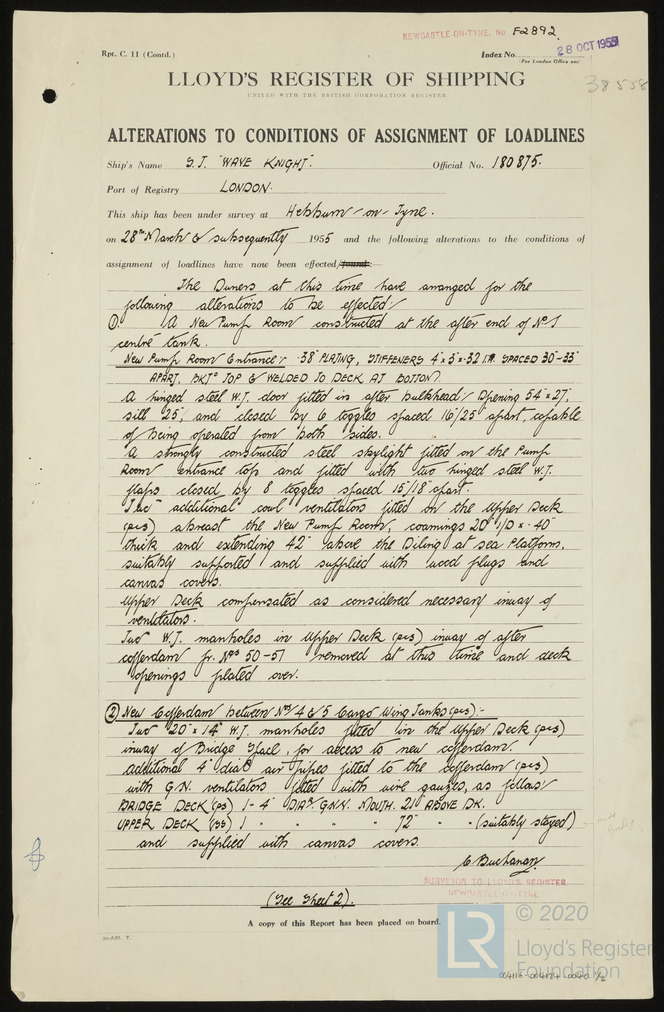 NEWCASTLE-ON-TYNE, No F2892
Rpt. C. 11 (Contd.)
Index No.
28 OCT 1955
(For London Office use)
38558
LLOYD'S REGISTER OF SHIPPING
UNITED WITH THE BRITISH CORPORATION REGISTER
ALTERATIONS TO CONDITIONS OF ASSIGNMENT OF LOADLINES
Ship's Name S.T. "WAVE KNIGHT". Official No. 180875.
Port of Registry LONDON.
This ship has been under survey at Hebburn-on-Tyne.
on 28th March & subsequently 1955 and the following alterations to the conditions of
assignment of loadlines have now been effected/found:—
The Owners at this time have arranged for the
following alterations to be effected:
① A New Pump Room constructed at the after end of No 1
centre tank.
New Pump Room Entrance:- .38" PLATING, STIFFENERS 4"x3"x.32 I.A. SPACED 30"-33"
APART, BKTD TOP & WELDED TO DECK AT BOTTOM.
A hinged steel W.T. door fitted in after Bulkhead: Opening 54"x27",
sill 25", and closed by 6 toggles spaced 16"/25" apart, capable
of being operated from both sides.
A strongly constructed steel skylight fitted on the Pump
Room entrance top and fitted with two hinged steel W.T.
flaps closed by 8 toggles spaced 15"/18" apart.
Two additional cowl ventilators fitted on the Upper Deck
(p&s) abreast the New Pump Room, coamings 20" I/D x .40"
thick and extending 42" above the at sea Platform,
suitably supported and supplied with wood plugs and
canvas covers.
Upper Deck compensated as considered necessary inway of
ventilators.
Two W.T. manholes in Upper Deck (p&s) inway of after
cofferdam fr. Nos 50-51 removed at this time and deck
openings plated over.
② New Cofferdam between Nos 4 & 5 Cargo Wing Tanks (p&s):-
Two 20"x14" W.T. manholes fitted in the Upper Deck (p&s)
inway of Bridge Space, for access to new cofferdam.
Additional 4" diar air pipes fitted to the cofferdam (p&s)
with G.N. ventilators fitted with wire gauzes, as follows:
BRIDGE DECK (p&s) 1-4" DIAR G.N.V. MOUTH. 21" ABOVE DK.
UPPER DECK (p&s) 1 - - - - 72" - - (suitably stayed)
and supplied with canvas covers.
C Buchanan
SURVEYOR TO LLOYD'S REGISTER
NEWCASTLE-ON-TYNE
(See Sheet 2).
A copy of this Report has been placed on board.
© 2020
LR
Lloyd's Register
Foundation
004116-004124-0040 1/2